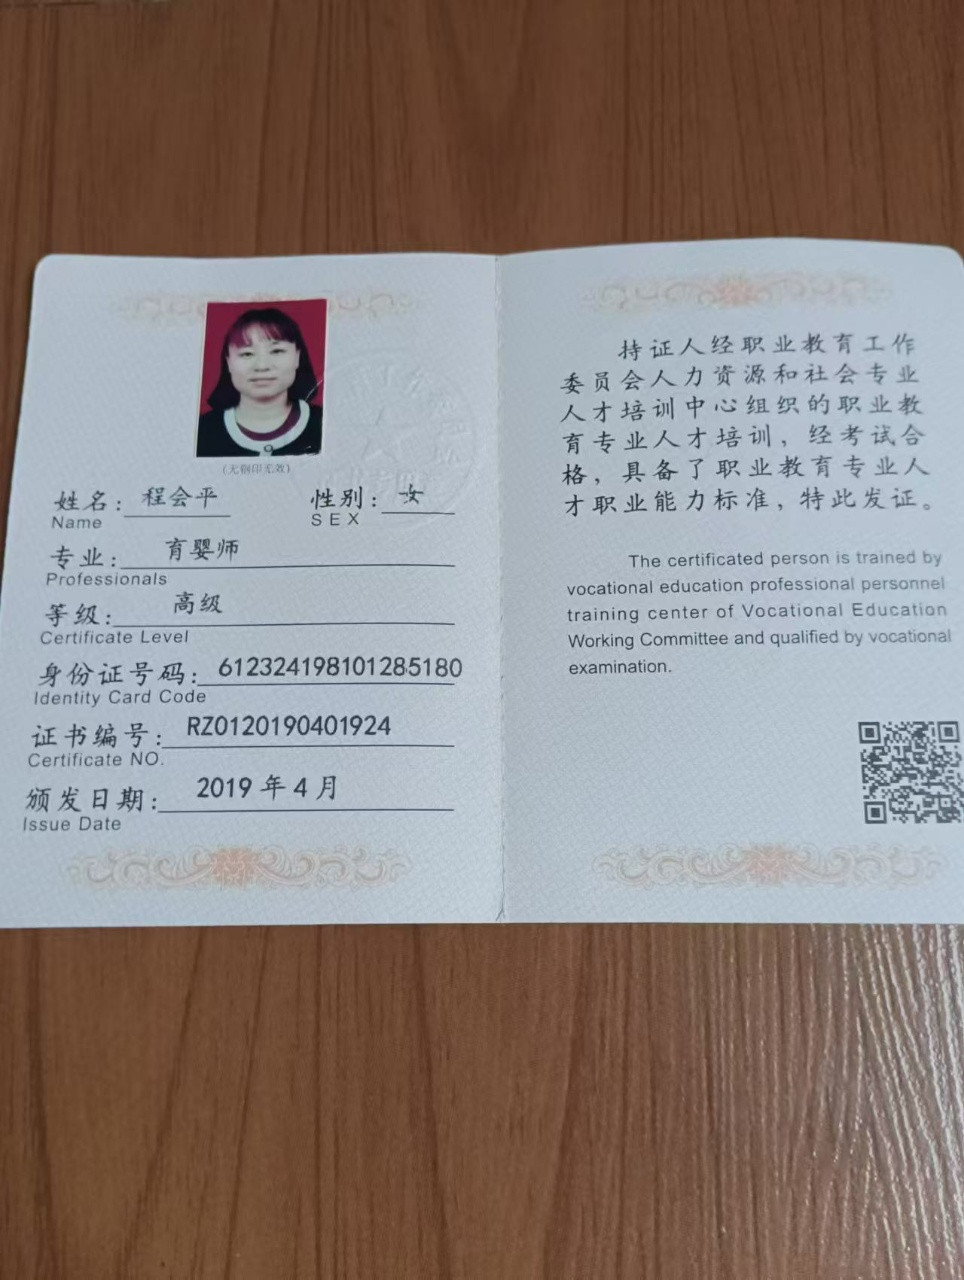 (无钢印无效)
姓名: 程会平 性别: 女
Name SEX
专业: 育婴师
Professionals
等级: 高级
Certificate Level
身份证号码: 612324198101285180
Identity Card Code
证书编号: RZ0120190401924
Certificate NO.
颁发日期: 2019年4月
Issue Date
持证人经职业教育工作
委员会人力资源和社会专业
人才培训中心组织的职业教
育专业人才培训，经考试合
格，具备了职业教育专业人
才职业能力标准，特此发证。
The certificated person is trained by
vocational education professional personnel
training center of Vocational Education
Working Committee and qualified by vocational
examination.